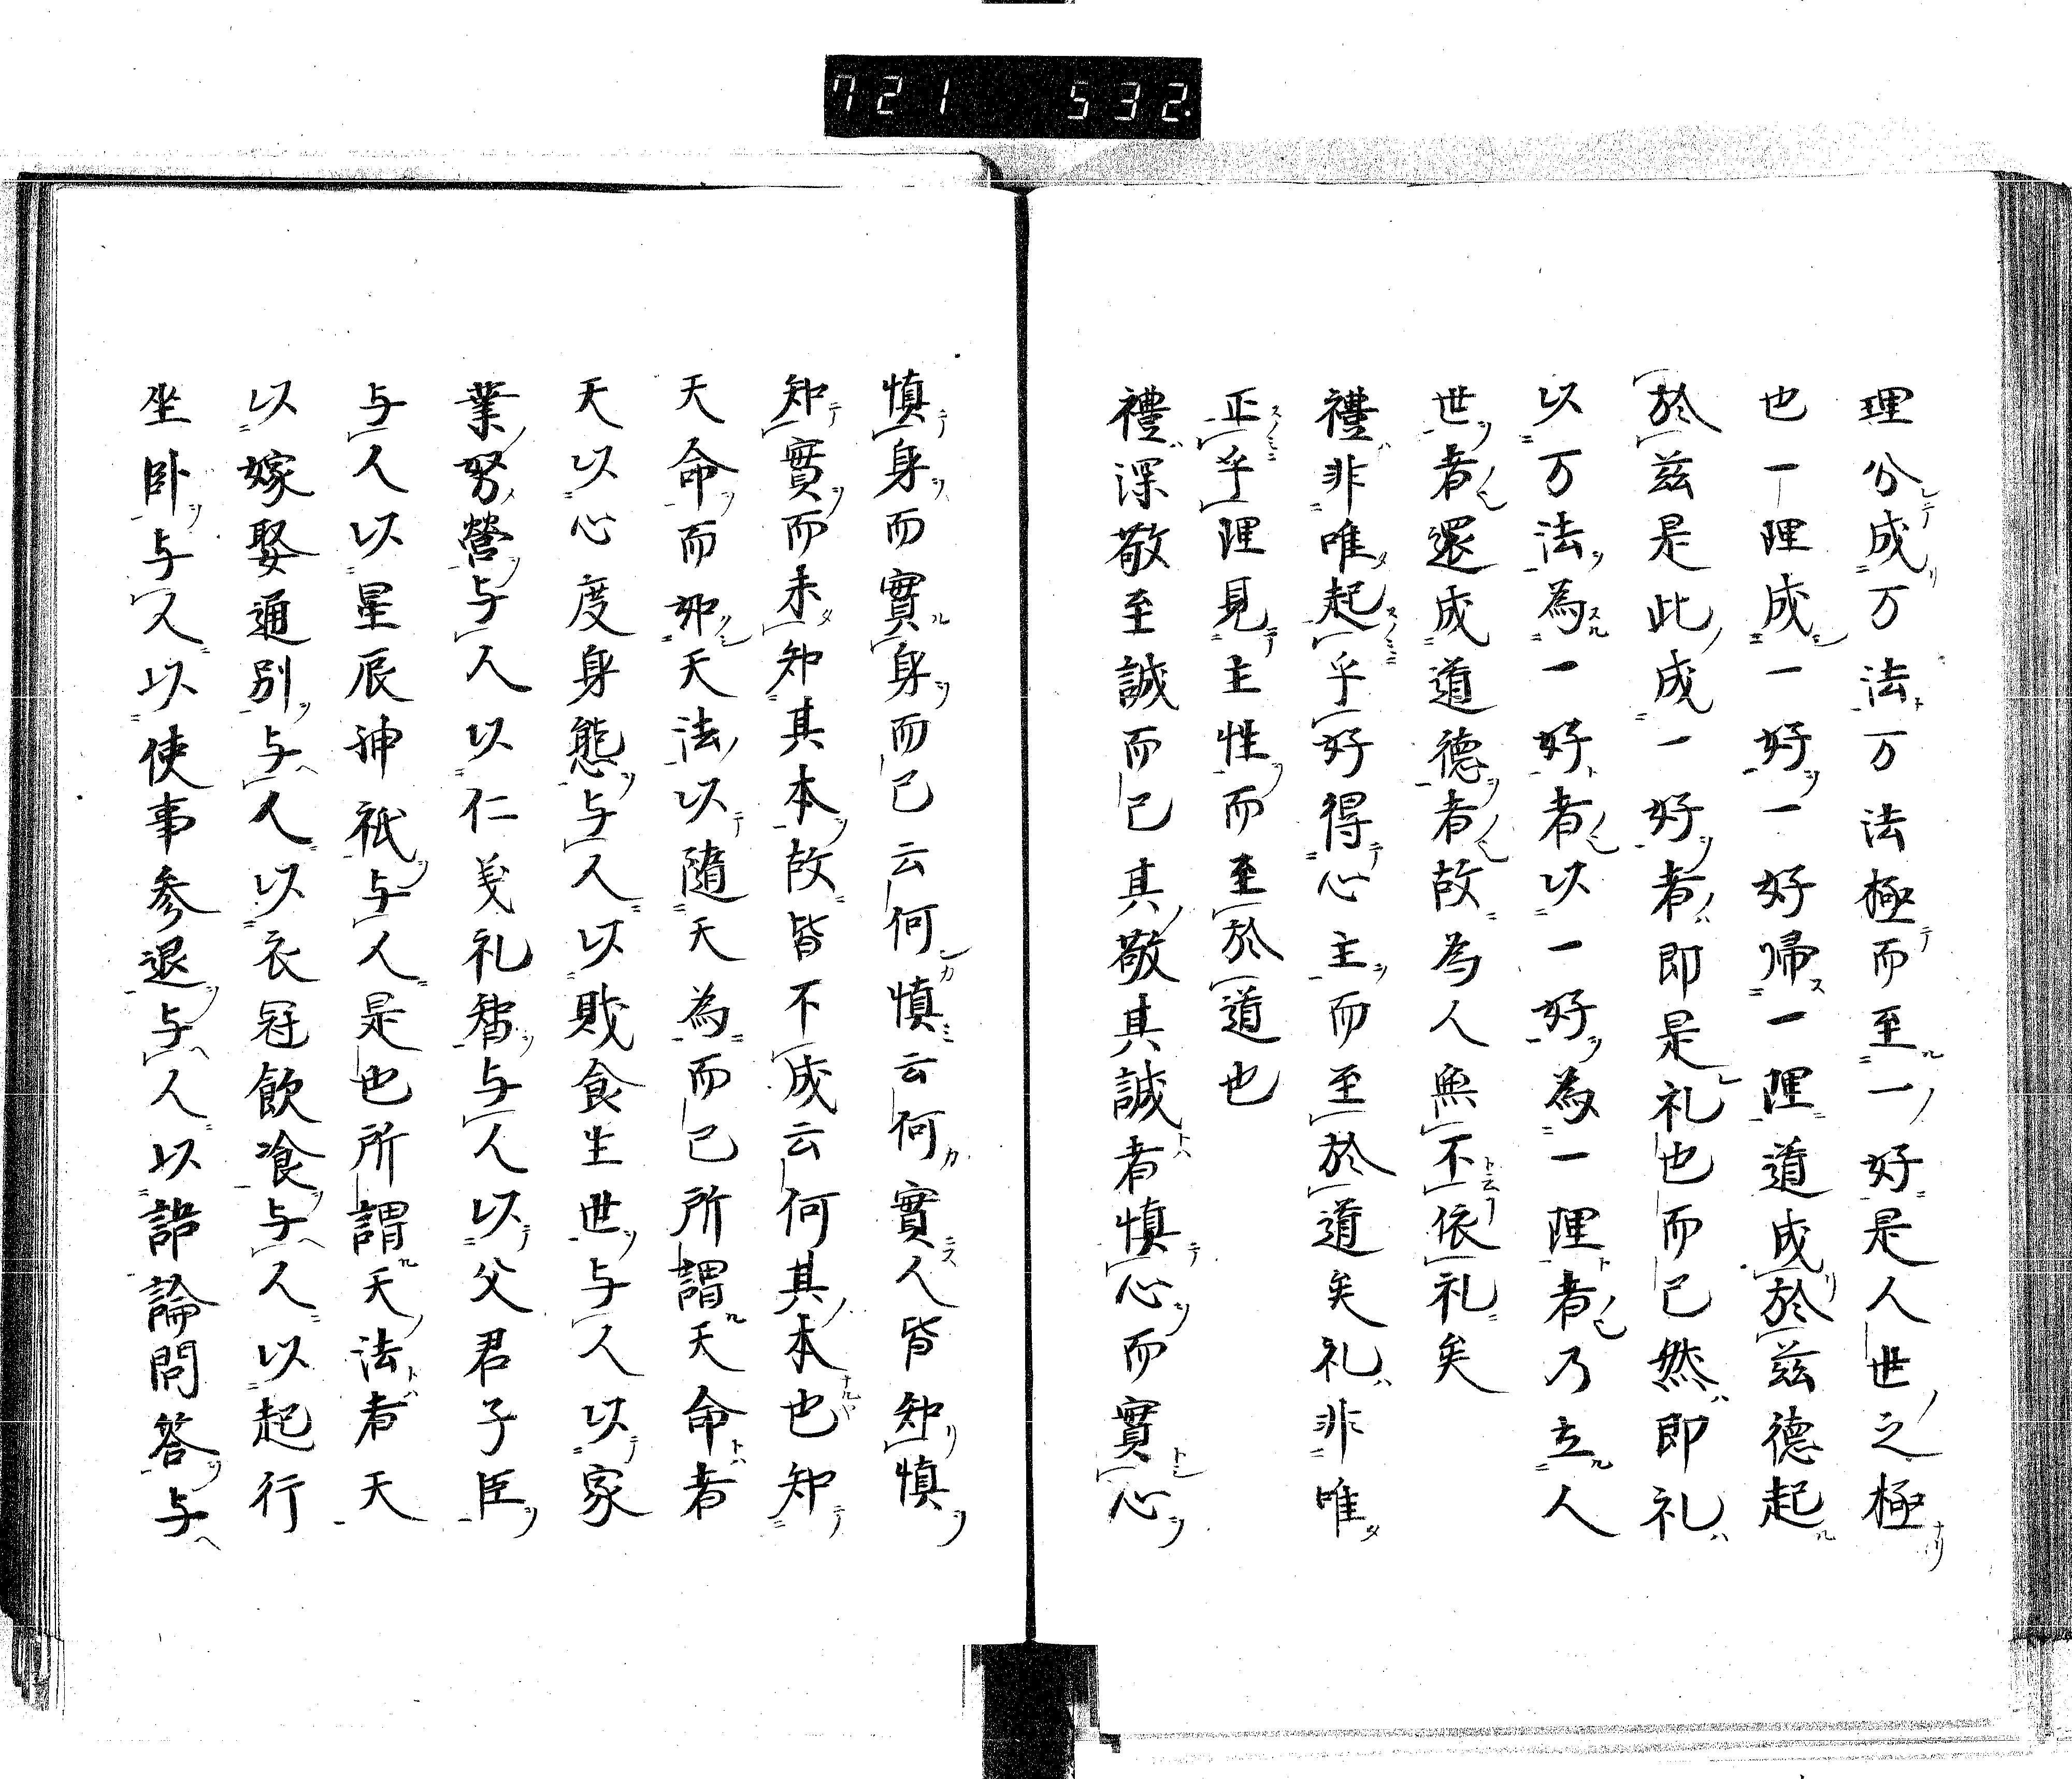 721 532
理分成万法万法極而至一好是人世之極
也一理成一好一好帰一理道成於茲德起
於茲是此成一好者即是礼也而已然即礼
以万法為一好者以一好為一理者乃立人
世者還成道德者故為人無不依礼矣
禮非唯起乎好得心主而至於道矣礼非唯
正乎理見主性而至於道也
禮深敬至誠而已其敬其誠者慎心而實心
慎身而實身而已云何慎云何實人皆知慎
知實而未知其本故皆不成云何其本也知
天命而如天法以隨天為而已所謂天命者
天以心度身態与人以財食生世与人以家
業努營与人以仁義礼智与人以父君子臣
与人以星辰神祇与人是也所謂天法者天
以嫁娶通別与人以衣冠飲飡与人以起行
坐卧与人以使事参退与人以論問答与